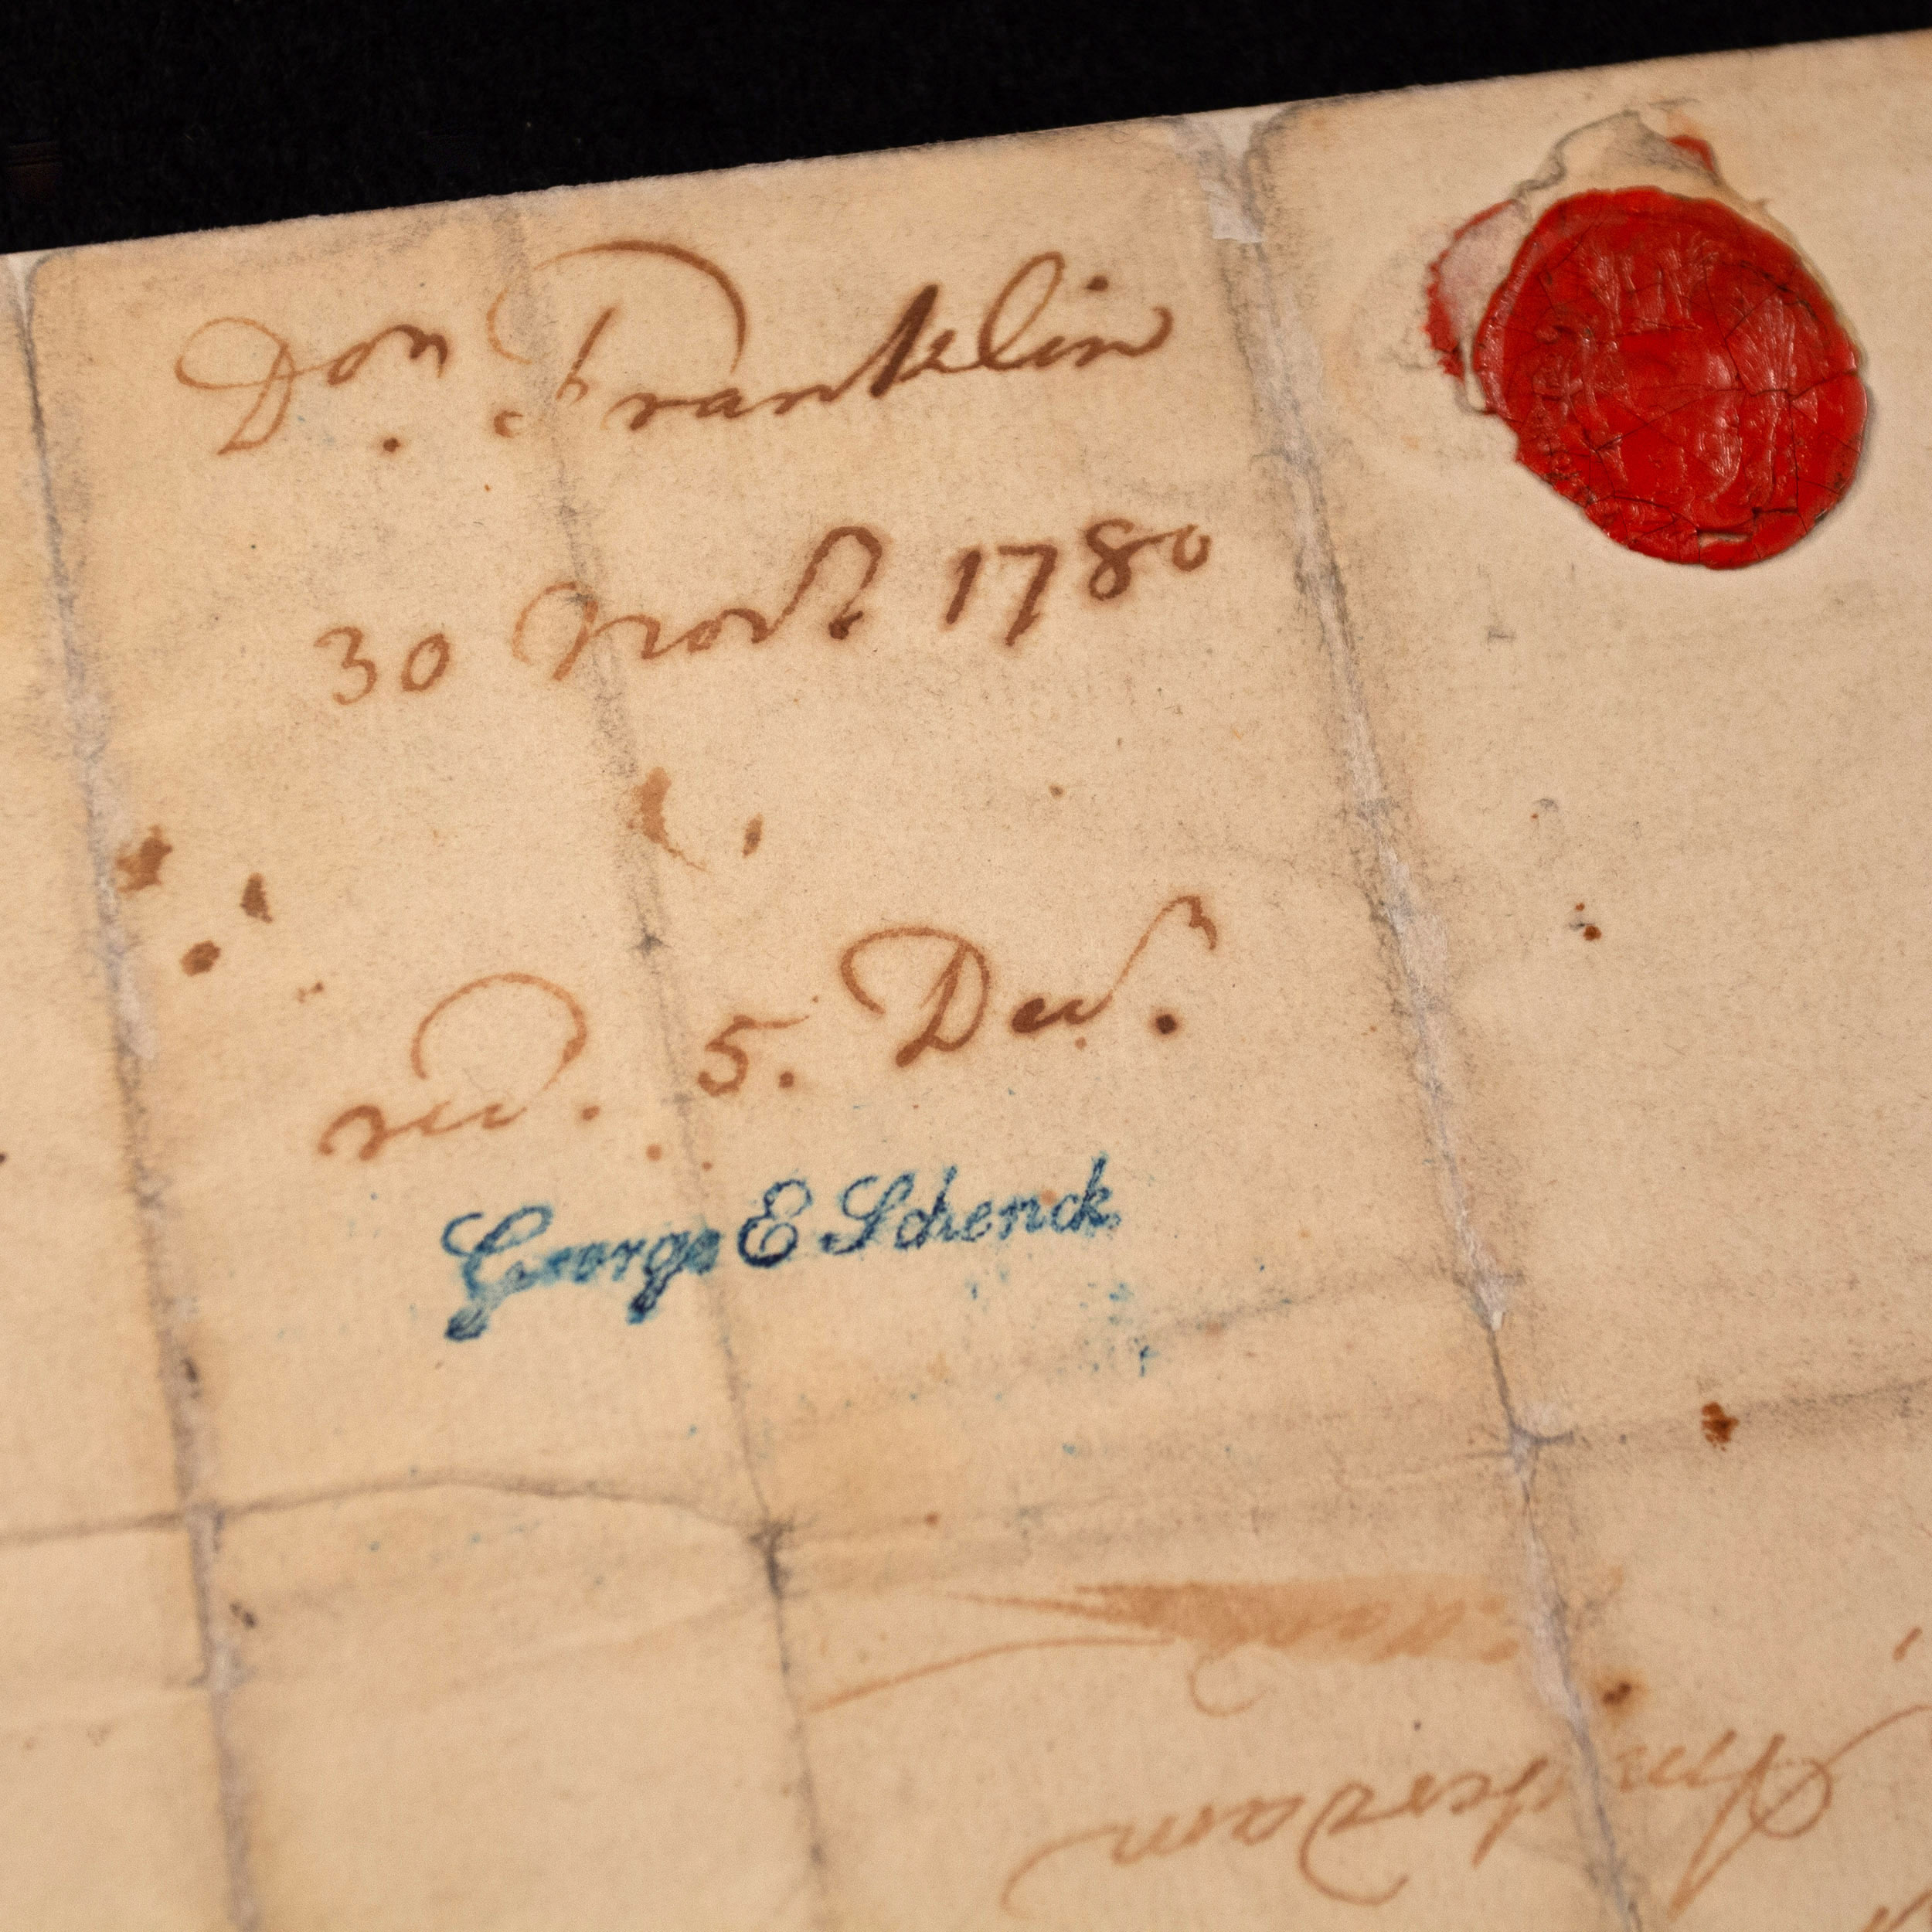 Don. Franklin
30 Novr. 1780
recd. 5. Decr.
George E Schenck
Amsterdam